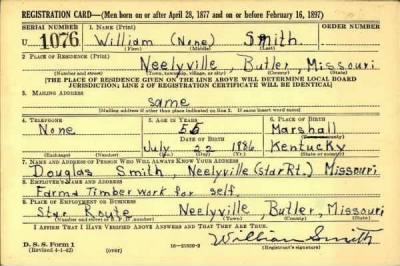 REGISTRATION CARD—(Men born on or after April 28, 1877 and on or before February 16, 1897)
SERIAL NUMBER 1. NAME (Print) ORDER NUMBER
U 1076 William (None) Smith
(First) (Middle) (Last)
2. PLACE OF RESIDENCE (Print)
Neelyville, Butler, Missouri
(Number and street) (Town, township, village, or city) (County) (State)
[THE PLACE OF RESIDENCE GIVEN ON THE LINE ABOVE WILL DETERMINE LOCAL BOARD
JURISDICTION; LINE 2 OF REGISTRATION CERTIFICATE WILL BE IDENTICAL]
3. MAILING ADDRESS
same
[Mailing address if other than place indicated on line 2. If same insert word same]
4. TELEPHONE 5. AGE IN YEARS 6. PLACE OF BIRTH
None 55 Marshall
DATE OF BIRTH (Town or county)
July 22 1886 Kentucky
(Exchange) (Number) (Mo.) (Day) (Yr.) (State or country)
7. NAME AND ADDRESS OF PERSON WHO WILL ALWAYS KNOW YOUR ADDRESS
Douglas Smith, Neelyville (Star Rt.) Missouri
8. EMPLOYER'S NAME AND ADDRESS
Farm & Timber work for self.
9. PLACE OF EMPLOYMENT OR BUSINESS
Star Route Neelyville, Butler, Missouri
(Number and street or R. F. D. number) (Town) (County) (State)
I AFFIRM THAT I HAVE VERIFIED ABOVE ANSWERS AND THAT THEY ARE TRUE.
William Smith
D. S. S. Form 1
(Revised 4-1-42) (over) (Registrant's signature)